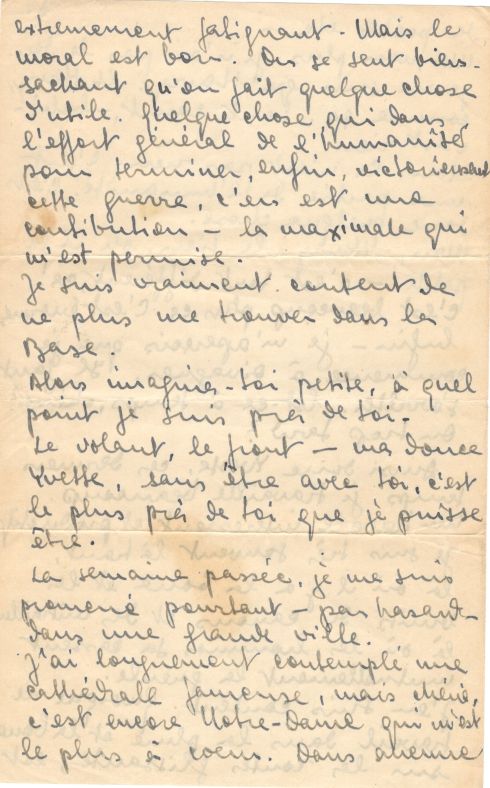 extremement fatignant. Mais le
moral est bon. On se sent bien -
sachant qu'on fait quelque chose
d'utile. Quelque chose qui dans
l'effort général de l'humanité
pour terminer, enfin, victorieusement
cette guerre, c'en est une
contibution - la maximale qui
m'est permise.
Je suis vraiment content de
ne plus me trouver dans la
Base.
Alors imagines-toi petite, à quel
point je suis près de toi -
Le volant, le front - ma douce
Yvette, sans être avec toi, c'est
le plus près de toi que je puisse
être.
La semaine passée, je me suis
promené pourtant - par hasard -
dans une grande ville.
J'ai longuement contemplé une
cathédrale fameuse, mais chérie,
c'est encore Notre-Dame qui m'est
le plus à coeur. Dans aucune